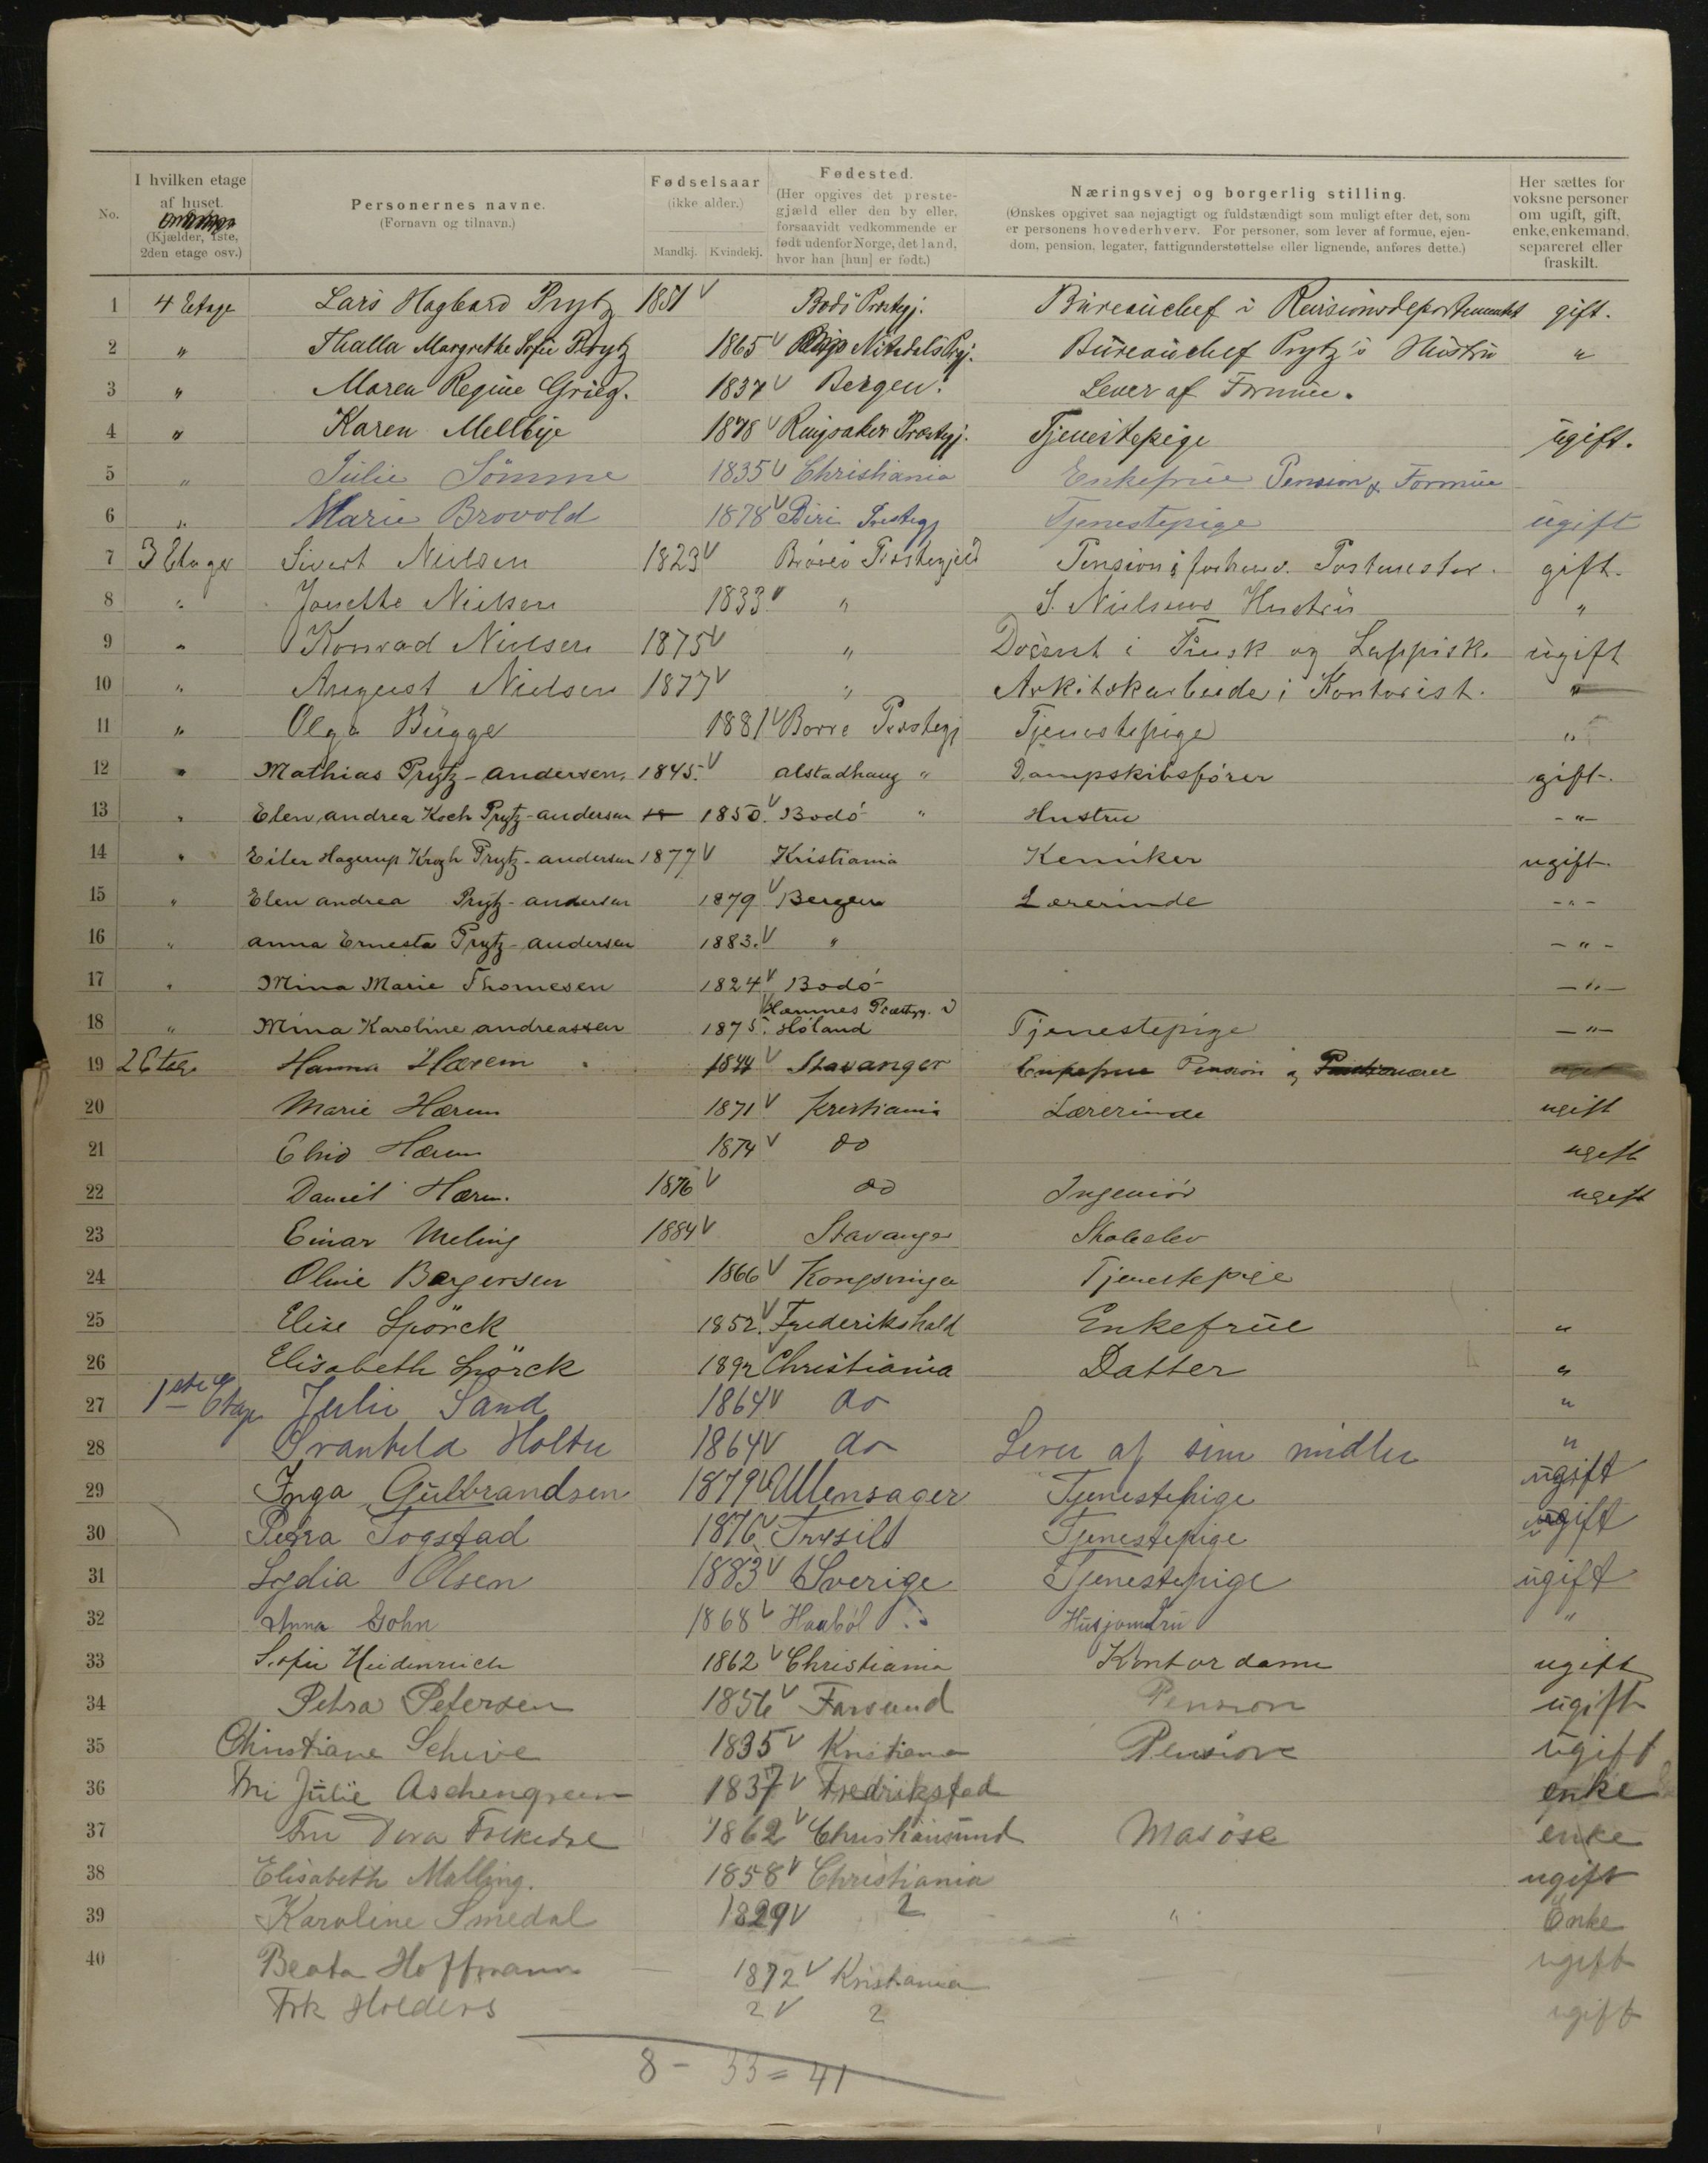 No. | I hvilken etage af huset. (Kjælder, 1ste, 2den etage osv.) | Personernes navne. (Fornavn og tilnavn.) | Fødselsaar (ikke alder.) Mandkj. Kvindekj. | Fødested. (Her opgives det prestegjæld eller den by eller, forsaavidt vedkommende er født udenfor Norge, det land, hvor han [hun] er født.) | Næringsvej og borgerlig stilling. (Ønskes opgivet saa nøjagtigt og fuldstændigt som muligt efter det, som er personens hovederhverv. For personer, som lever af formue, ejendom, pension, legater, fattigunderstøttelse eller lignende, anføres dette.) | Her sættes for voksne personer om ugift, gift, enke, enkemand, separeret eller fraskilt.
1 4 Etage Lars Hagbard Prytz 1851 V Bodö Prestegj. Büreauchef i Revisionsdepartementet gift.
2 " Thalla Margrethe Sofie Prytz 1865 V Nitedals Prgj. Büreauchef Prytz's Hustru "
3 " Maren Regine Grieg. 1837 V Bergen. Lever af Formue.
4 " Karen Mellbye 1878 V Ringsaker Prestegj. Tjenestepige ugift.
5 " Julie Sömme 1835 V Christiania Enkefrue Pension & Formue
6 " Marie Brovold 1878 V Biri Prestegj Tjenestepige ugift
7 3 Etage Sivert Nielsen 1823 V Prestegjeld Pension; Postmester. gift.
8 " Jonette Nielsen 1833 " " S. Nielsens Hustru "
9 " Konrad Nielsen 1875 V " Docent i Finsk og Lappisk. ugift
10 " August Nielsen 1877 V " i Kontorist. "
11 " Olga Bugge 1881 V Borre Prestegj Tjenestepige "
12 " Mathias Prytz-Andersen. 1845. V Alstadhaug " Dampskibsfører gift.
13 " Elen Andrea Koch Prytz-Andersen 1850. V Bodó " Hustru -"-
14 " Eiler Hagerup Krogh Prytz-Andersen 1877 V Kristiania Kemiker ugift.
15 " Elen Andrea Prytz-Andersen 1879 V Bergen Lærerinde -"-
16 " Anna Ernesta Prytz-Andersen 1883. V " -"-
17 " Mina Marie Thomesen 1824 V Bodó -"-
18 " Mina Karoline Andreassen 1875. V Hemnes Præstgj. i Høland Tjenestepige -"-
19 2 Etage Hanna Hærem 1844 V Stavanger Enkefrue Pension
20 Marie Hærem 1871 V Kristiania Lærerinde ugift
21 Hærem 1874 V do ugift
22 Daniel Hærem. 1876 V do Ingeniör ugift
23 Einar Meling 1884 V Stavanger Skoleelev
24 Oline Borgersen 1866 V Kongsvinger Tjenestepige
25 Elise Spörck 1852. V Frederikshald Enkefrue "
26 Elisabeth Spörck 1892 Christiania Datter "
27 1ste Etage Julie Sand 1864 V do "
28 Svanhild Holter 1864 V do Lever af sine midler "
29 Inga Gulbrandsen 1879 V Ullensager Tjenestepige ugift
30 Petra Togstad 1876 V Trysil Tjenestepige ugift
31 Lydia Olsen 1883 V Sverige Tjenestepige ugift
32 Anna Gohn 1868 V Haabøl Husjomfru "
33 Sofie Heidenreich 1862 V Christiania Kontordame ugift
34 Petra Petersen 1856 V Farsund Pension ugift
35 Christiane Schive 1835 V Kristiania Pension ugift
36 Fru Julie Aschengreen 1837 V Fredrikstad enke
37 Fru Dora 1862 V Christiansund Masöse enke
38 Elisabeth Malling. 1858 V Christiania ugift
39 Karoline Smedal 1829 V ? " Enke
40 Beata Hoffmann 1872 V Kristiania ugift
Frk Holders ? V ? ugift
8 - 33 = 41